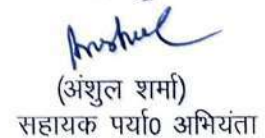 (अंशुल शर्मा)
सहायक पर्या0 अभियंता